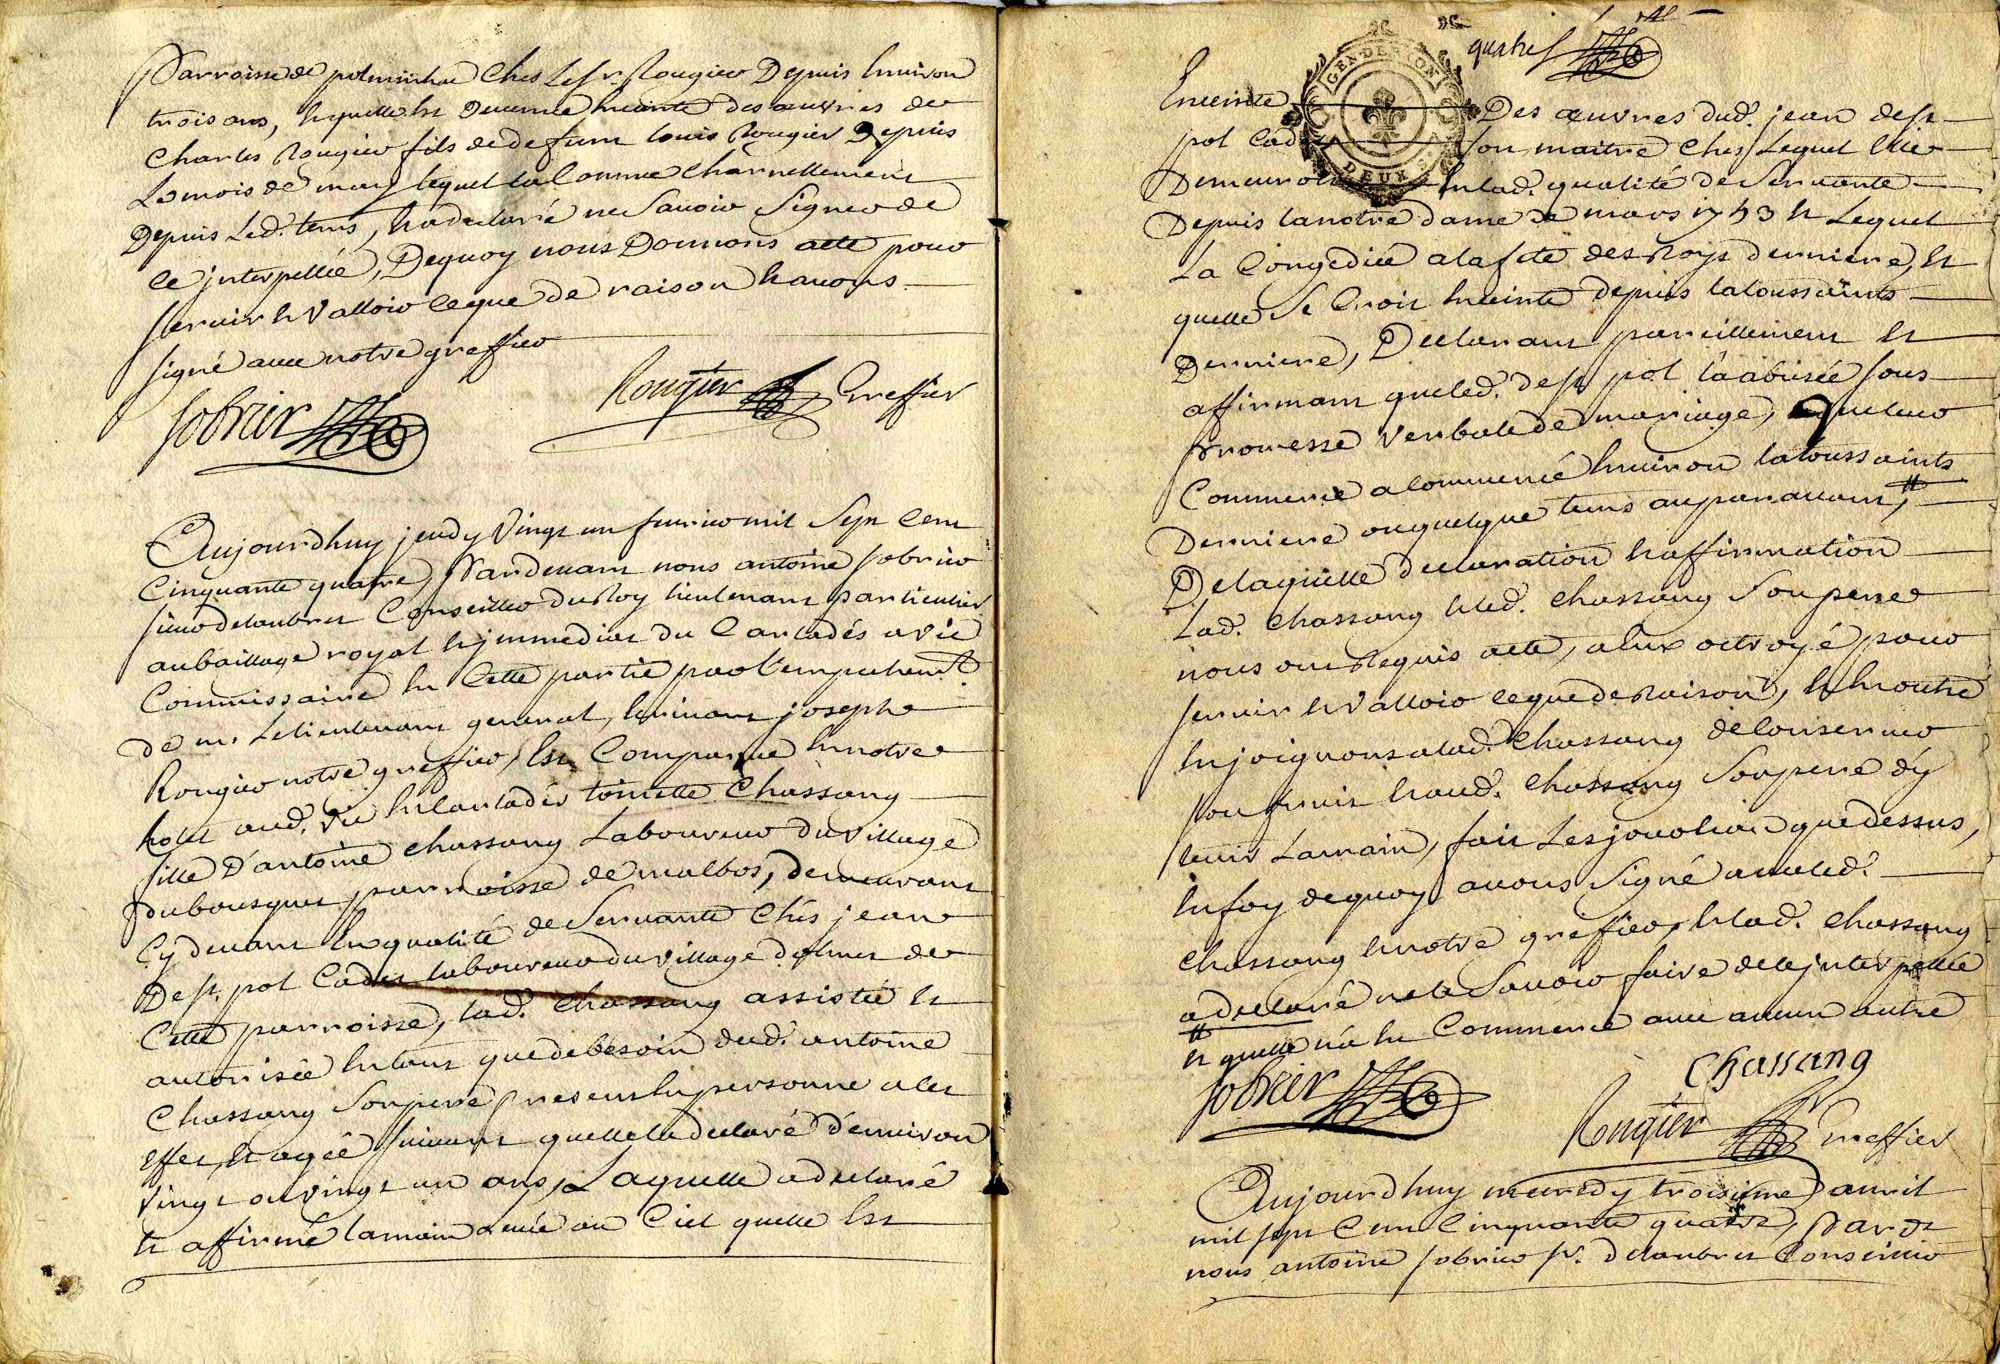 Parroisse de polminhac Chés Le sr. Rougier Depuis Environ
trois ans, laquelle Est Devenue Enceinte des œuvres de
Charles Rougier fils de defunt Louis Rougier Depuis
Le mois de may lequel la Connue Charnellement
Depuis Led. tems, Et a declaré ne Savoir Signer de
Ce jnterpellée, Dequoy nous Donnons acte pour
servir Et valloir ce que de raison Et avons
signé avec notre greffier
Sobrier Rougier Greffier
Aujourdhuy jeudy vingt un fevrier mil Sept Cent
Cinquante quatre, Pardevant nous antoine sobrier
sieur delaubret Conseiller du Roy lieutenant particulier
au baillage royal Et jmmediat du Carladés a vic
Commissaire En Cette partie par l'empechemt.
de m. Le lieutenant general, Ecrivant joseph
Rougier notre greffier, Est Comparue En notre
hotel aud. vic En Carladés toinette Chassang
fille D'antoine Chassang Laboureur du village
du bousquet parroisse de malbos, demeurant
Cy devant En qualité de Servante Chés jean
Desp. pol Cadet laboureur du village de de
Cette parroisse, lad. Chassang assistée Et
autorisée En tant que de besoin dud. antoine
Chassang Son pere present En personne a cet
effet, Et agée suivant quelle la declaré d'environ
vingt ou vingt un ans, Laquelle a declaré
Et affirmé la main levée au Ciel quelle Est
quatre
Enceinte Des œuvres dud. jean desp.
pol Cadet Son maitre Chés Lequel Elle
Demeuroit En lad. qualité de Servante
Depuis la notre dame de mars 1753 Et Lequel
La Congediée a la fete des Roys derniere, Et
quelle Se Croit Enceinte depuis la toussaints
Derniere, Declarant pareillement Et
affirmant que led. desp. pol l'a abusée sous
promesse verbale de mariage, que leur
Commerce a commencé Environ la toussaints
Derniere ou quelque tems auparavant, #
De laquelle declaration Et affirmation
Lad. Chassang Et led. Chassang Son pere
nous ont Requis acte, a Eux octroyé pour
servir Et valloir ce que de Raison, Et En outre
Enjoignons a lad. Chassang de Conserver
son fruit Et aud. Chassang Son pere d'y
tenir La main, fait Les jour et an que dessus,
En foy de quoy avons Signé avec led.
Chassang Et notre greffier, Et lad. Chassang
a declaré ne le Savoir faire de ce jnterpellée
# Et quelle n'a Eu Commerce avec aucun autre
Chassang
Sobrier Rougier Greffier
Aujourdhuy mercredy troisieme avril
mil sept Cent Cinquante quatre, Pardt.
nous antoine sobrier sr. delaubret Conseiller